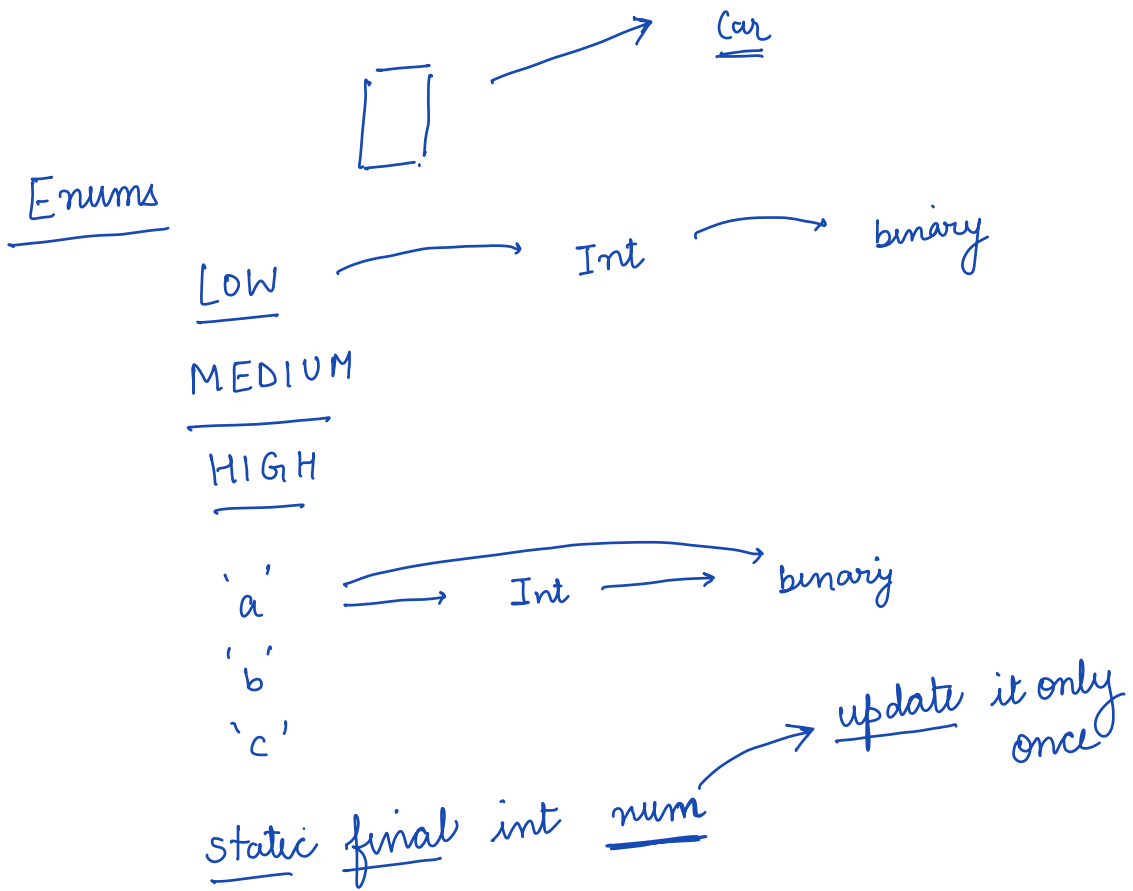 Car
Enums
LOW Int binary
MEDIUM
HIGH
'a' Int binary
'b'
'c'
update it only
once
static final int num